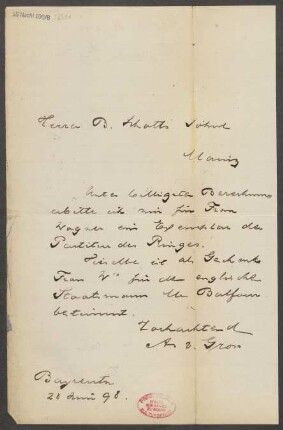 Herrn B. Schott's Söhne
Mainz
Unter billigster Berechnung
erbitte ich mir für Frau
Wagner ein Exemplar der
Partitur des Ringes.
Dieselbe ist als Geschenk
Frau W's für den englischen
Staatsmann Mr Balfour
bestimmt.
Hochachtend
A. v. Gross
Bayreuth
20 Juni 98.